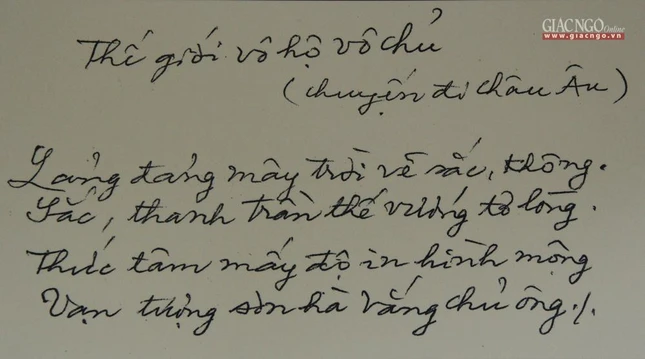 GIACNGO Online
www.giacngo.vn
Thế giới vô hộ vô chủ
(chuyến đi châu Âu)
Lảng đảng mây trời vẽ sắc, không.
Sắc, thanh trần thế vướng tơ lòng.
Thức tâm mấy độ in hình mộng
Vạn tượng sơn hà vắng chủ ông./.